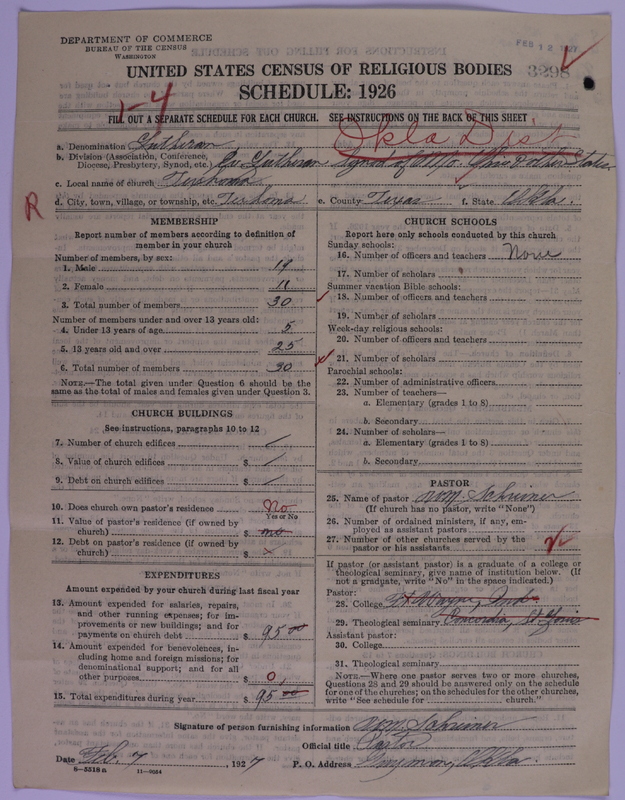 DEPARTMENT OF COMMERCE
BUREAU OF THE CENSUS
WASHINGTON
FEB 12 1927
3298
UNITED STATES CENSUS OF RELIGIOUS BODIES
SCHEDULE: 1926
1-4
FILL OUT A SEPARATE SCHEDULE FOR EACH CHURCH. SEE INSTRUCTIONS ON THE BACK OF THIS SHEET
Okla Dist
a. Denomination Lutheran
b. Division (Association, Conference, Diocese, Presbytery, Synod, etc.) Ev Lutheran Synod of Mo. Ohio & other States
c. Local name of church Texhoma
d. City, town, village, or township, etc. Texhoma e. County Texas f. State Okla.
R
MEMBERSHIP
Report number of members according to definition of
member in your church
Number of members, by sex:
1. Male 19
2. Female 11
3. Total number of members 30
Number of members under and over 13 years old:
4. Under 13 years of age 5
5. 13 years old and over 25
6. Total number of members 30
NOTE.—The total given under Question 6 should be the
same as the total of males and females given under Question 3.
CHURCH BUILDINGS
See instructions, paragraphs 10 to 12
7. Number of church edifices
8. Value of church edifices $
9. Debt on church edifices $
10. Does church own pastor's residence No
Yes or No
11. Value of pastor's residence (if owned by
church) $ no
12. Debt on pastor's residence (if owned by
church) $ x
EXPENDITURES
Amount expended by your church during last fiscal year
13. Amount expended for salaries, repairs,
and other running expenses; for im-
provements or new buildings; and for
payments on church debt $ 95 00
14. Amount expended for benevolences, in-
cluding home and foreign missions; for
denominational support; and for all
other purposes $ 0
15. Total expenditures during year $ 95 00
CHURCH SCHOOLS
Report here only schools conducted by this church
Sunday schools:
16. Number of officers and teachers None
17. Number of scholars
Summer vacation Bible schools:
18. Number of officers and teachers
19. Number of scholars
Week-day religious schools:
20. Number of officers and teachers
21. Number of scholars
Parochial schools:
22. Number of administrative officers
23. Number of teachers—
a. Elementary (grades 1 to 8)
b. Secondary
24. Number of scholars—
a. Elementary (grades 1 to 8)
b. Secondary
PASTOR
25. Name of pastor WM. Schreiner
(If church has no pastor, write "None")
26. Number of ordained ministers, if any, em-
ployed as assistant pastors
27. Number of other churches served by the
pastor or his assistants
If pastor (or assistant pastor) is a graduate of a college or
theological seminary, give name of institution below. (If
not a graduate, write "No" in the space indicated.)
Pastor:
28. College Ft Wayne, Ind.
29. Theological seminary Concordia, St Louis
Assistant pastor:
30. College
31. Theological seminary
NOTE.—Where one pastor serves two or more churches,
Questions 28 and 29 should be answered only on the schedule
for one of the churches; on the schedules for the other churches,
write "See schedule for church."
Signature of person furnishing information WM. Schreiner
Official title Pastor
Date Feb. 7, 1927 P. O. Address Guymon, Okla.
8-5518a 11-9054